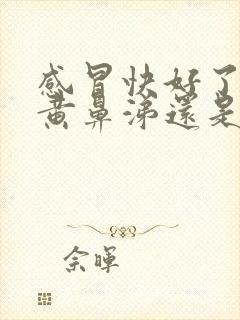 感冒快好了
黄鼻涕還是
佘暉